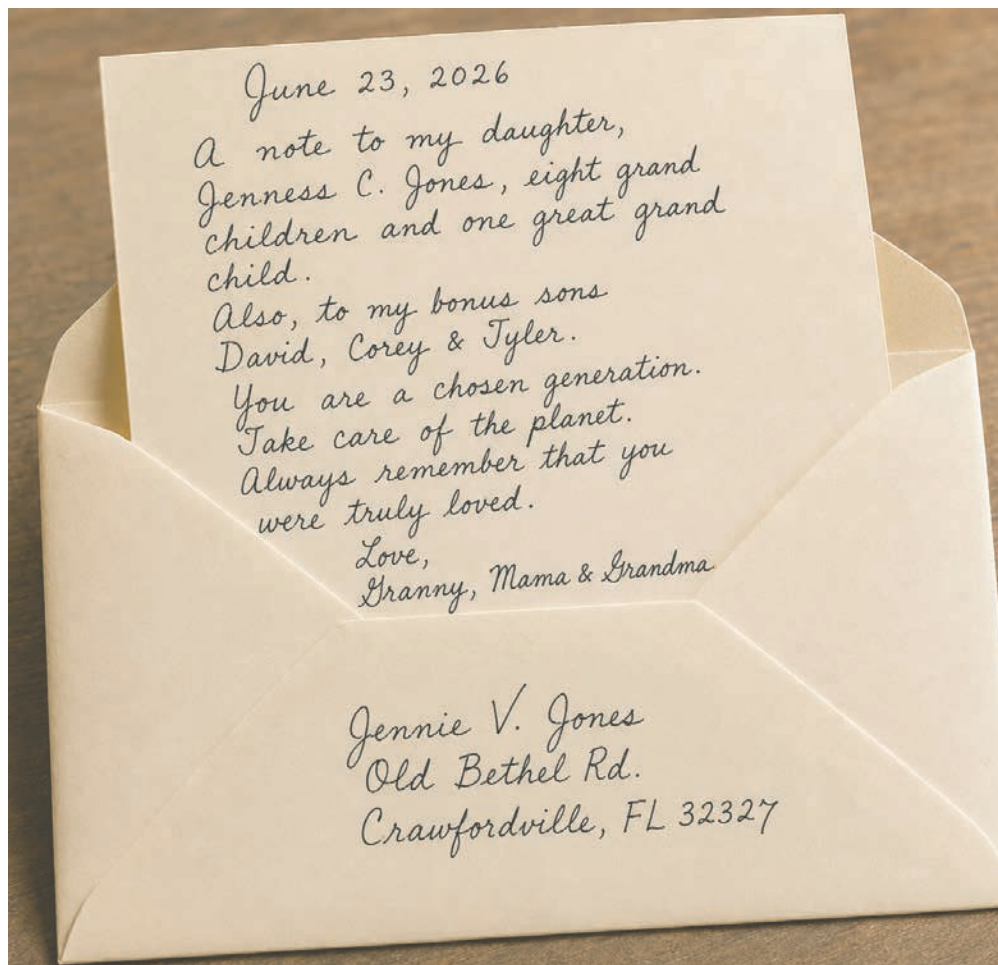 June 23, 2026
A note to my daughter,
Jenness C. Jones, eight grand
children and one great grand
child.
Also, to my bonus sons
David, Corey & Tyler.
You are a chosen generation.
Take care of the planet.
Always remember that you
were truly loved.
Love,
Granny, Mama & Grandma
Jennie V. Jones
Old Bethel Rd.
Crawfordville, FL 32327